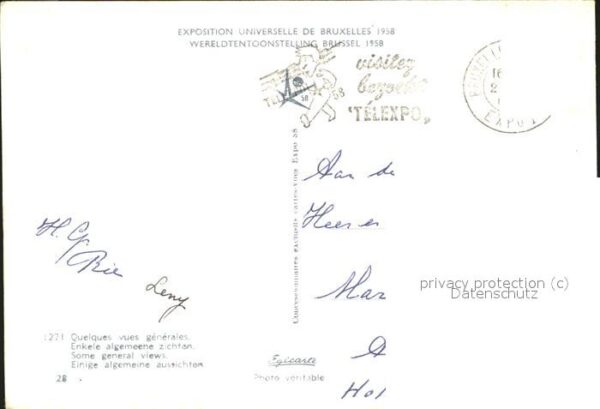 EXPOSITION UNIVERSELLE DE BRUXELLES 1958
WERELDTENTOONSTELLING BRUSSEL 1958
visitez
bezoekt
"TÉLEXPO"
58
58
16
2
EXPO
Concessionnaires exclusifs cartes-vues Expo 58
Aan de
Heer en
H. G.
Rie
Leny
privacy protection (c)
Datenschutz
Mar
A
Hol
1221 Quelques vues générales.
Enkele algemeene zichten.
Some general views.
Einige algemeine aussichten
28
Egicarte
Photo véritable